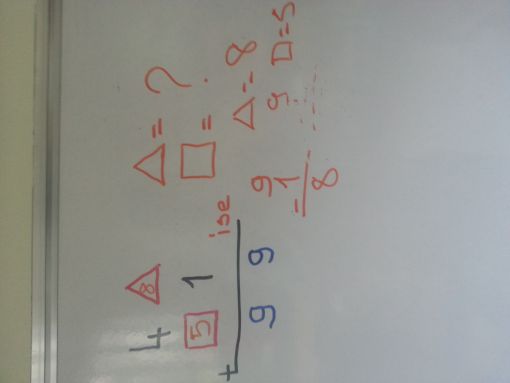 4 △8 △ = ?
□5 1 □ =
+ ise
9 9
9
- 1
8
△ = 8
9 □ = 5